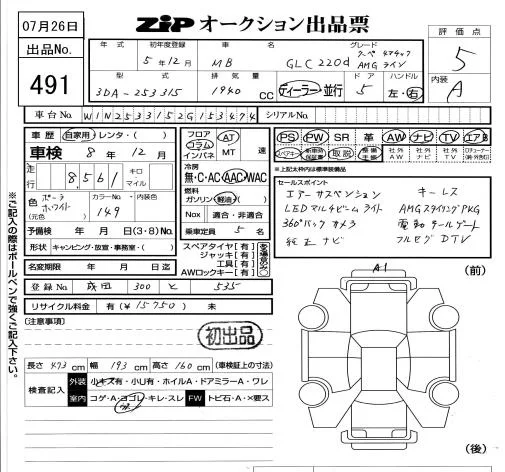 07月26日
ZiP オークション出品票
出品No.
491
年式 初年度登録 車名 グレード
5年12月 MB GLC220d クーペ 4マチック AMGライン
型式 排気量 ドア ハンドル
3DA-253315 1940 CC ディーラー・並行 5 左・右
評価点
5
内装
A
車台No. W1N2533152G153474 シリアルNo.
車歴 自家用・レンタ・( )
車検 8年12月
走行 8,561 キロ マイル
色 ポーラーホワイト カラーNo. 149 内装色
(元色)
予備検 年 月 日(3・8)No.
形状 キャンピング・放宣・事務室・( )
名変期限 年 月 日迄
登録No. 成田 300 と 535
リサイクル料金 有(¥15,750) 未
フロア コラム インパネ AT MT 速
冷房
無・C・AC・AAC・WAC
燃料
ガソリン・軽油・( )
Nox 適合・非適合
乗車定員 5 名
スペアタイヤ[有]
ジャッキ[有]
工具[有]
AWロックキー[有]
PS PW SR 革 AW ナビ TV エアB
スペアキー 取説 社外AW 社外ナビ 社外TV
※上記太枠内は標準装備品
セールスポイント
エアーサスペンション キーレス
LEDマルチビームライト AMGスタイリングPKG
360°バックカメラ 電動テールゲート
純正ナビ フルセグDTV
※ご記入の際はボールペンで強くご記入下さい。
[注意事項]
初出品
長さ 473 cm 幅 193 cm 高さ 160 cm (車検証上の寸法)
検査記入 外装 小キズ有・小U有・ホイルA・ドアミラーA・ワレ
室内 コゲ・A・ヨゴレ・キレ・スレ FW トビ石・A・×要ス
A1
(前)
(後)